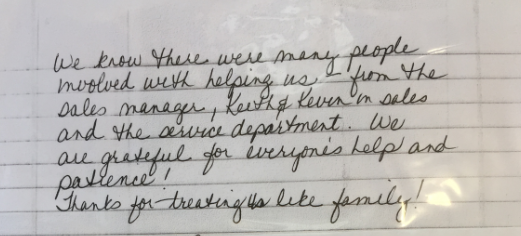 We know there were many people
involved with helping us - from the
sales manager, Keith & Kevin in sales
and the service department. We
are grateful for everyone's help and
patience!
Thanks for treating us like family!